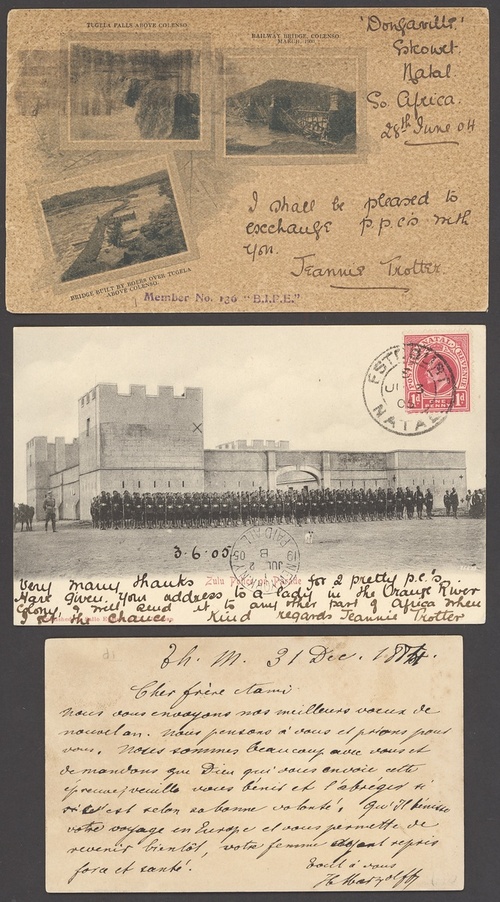 TUGELA FALLS ABOVE COLENSO.
RAILWAY BRIDGE, COLENSO
MARCH, 1900.
BRIDGE BUILT BY BOERS OVER TUGELA
ABOVE COLENSO.
'Dongaville.'
Eshowe.
Natal.
So. Africa.
28th June 04
I shall be pleased to
exchange p.p.c's with
you.
Jeannie Trotter.
Member No. 136 "B.I.P.E."
NATAL REVENUE
1d ONE PENNY 1d
NATAL
3.6.05
Zulu Police on Parade
Very many thanks for 2 pretty p.c's.
Have given your address to a lady in the Orange River
Colony & will send it to any other part of Africa when
I get the chance. Kind regards Jeannie Trotter
Th. M. 31 Dec. 1884.
Cher frère Ami
Nous vous envoyons nos meilleurs voeux de
nouvel an. Nous pensons à vous et prions pour
vous. Nous sommes beaucoup avec vous et
demandons que Dieu qui vous envoie cette
épreuve, veuille vous bénir et l'abréger si
c'est selon sa bonne volonté. Qu'Il bénisse
votre voyage en Europe et vous permette de
revenir bientôt, votre femme ayant repris
force et santé.
Tout à vous